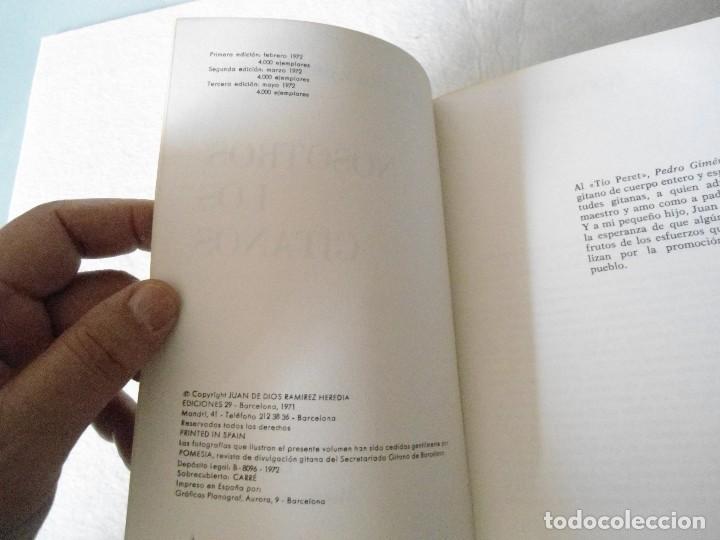 Primera edición: febrero 1972
4.000 ejemplares
Segunda edición: marzo 1972
4.000 ejemplares
Tercera edición: mayo 1972
4.000 ejemplares
NOSOTROS
LOS
© Copyright JUAN DE DIOS RAMIREZ HEREDIA
EDICIONES 29 - Barcelona, 1971
Mandri, 41 - Teléfono 212 38 36 - Barcelona
Reservados todos los derechos
PRINTED IN SPAIN
Las fotografías que ilustran el presente volumen han sido cedidas gentilmente por
POMESIA, revista de divulgación gitana del Secretariado Gitano de Barcelona
Depósito Legal: B - 8096 - 1972
Sobrecubierta: CARRÉ
Impreso en España por:
Gráficas Planograf, Aurora, 9 - Barcelona
Al «Tío Peret», Pedro Gimé
gitano de cuerpo entero y esp
tudes gitanas, a quien ad
maestro y amo como a pad
Y a mi pequeño hijo, Juan
la esperanza de que algú
frutos de los esfuerzos qu
lizan por la promoción
pueblo.
todocoleccion
todocoleccion.net